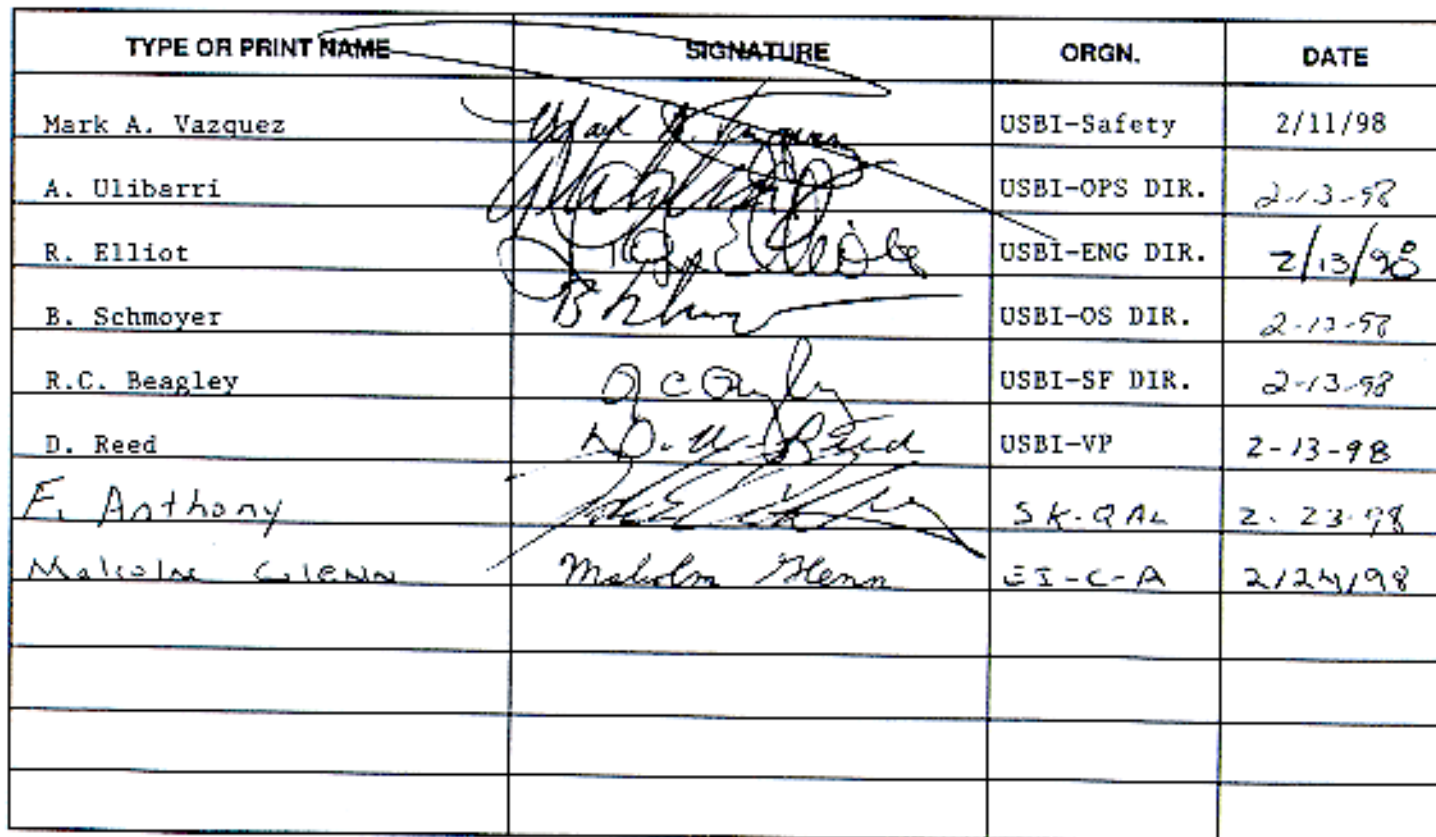 TYPE OR PRINT NAME SIGNATURE ORGN. DATE
Mark A. Vazquez Mark A. Vazquez USBI-Safety 2/11/98
A. Ulibarri USBI-OPS DIR. 2-13-98
R. Elliot USBI-ENG DIR. 2/13/98
B. Schmoyer USBI-OS DIR. 2-13-98
R.C. Beagley USBI-SF DIR. 2-13-98
D. Reed D. W. Reed USBI-VP 2-13-98
F. Anthony SK-QAL 2-23-98
Malcolm Glenn Malcolm Glenn EI-C-A 2/24/98